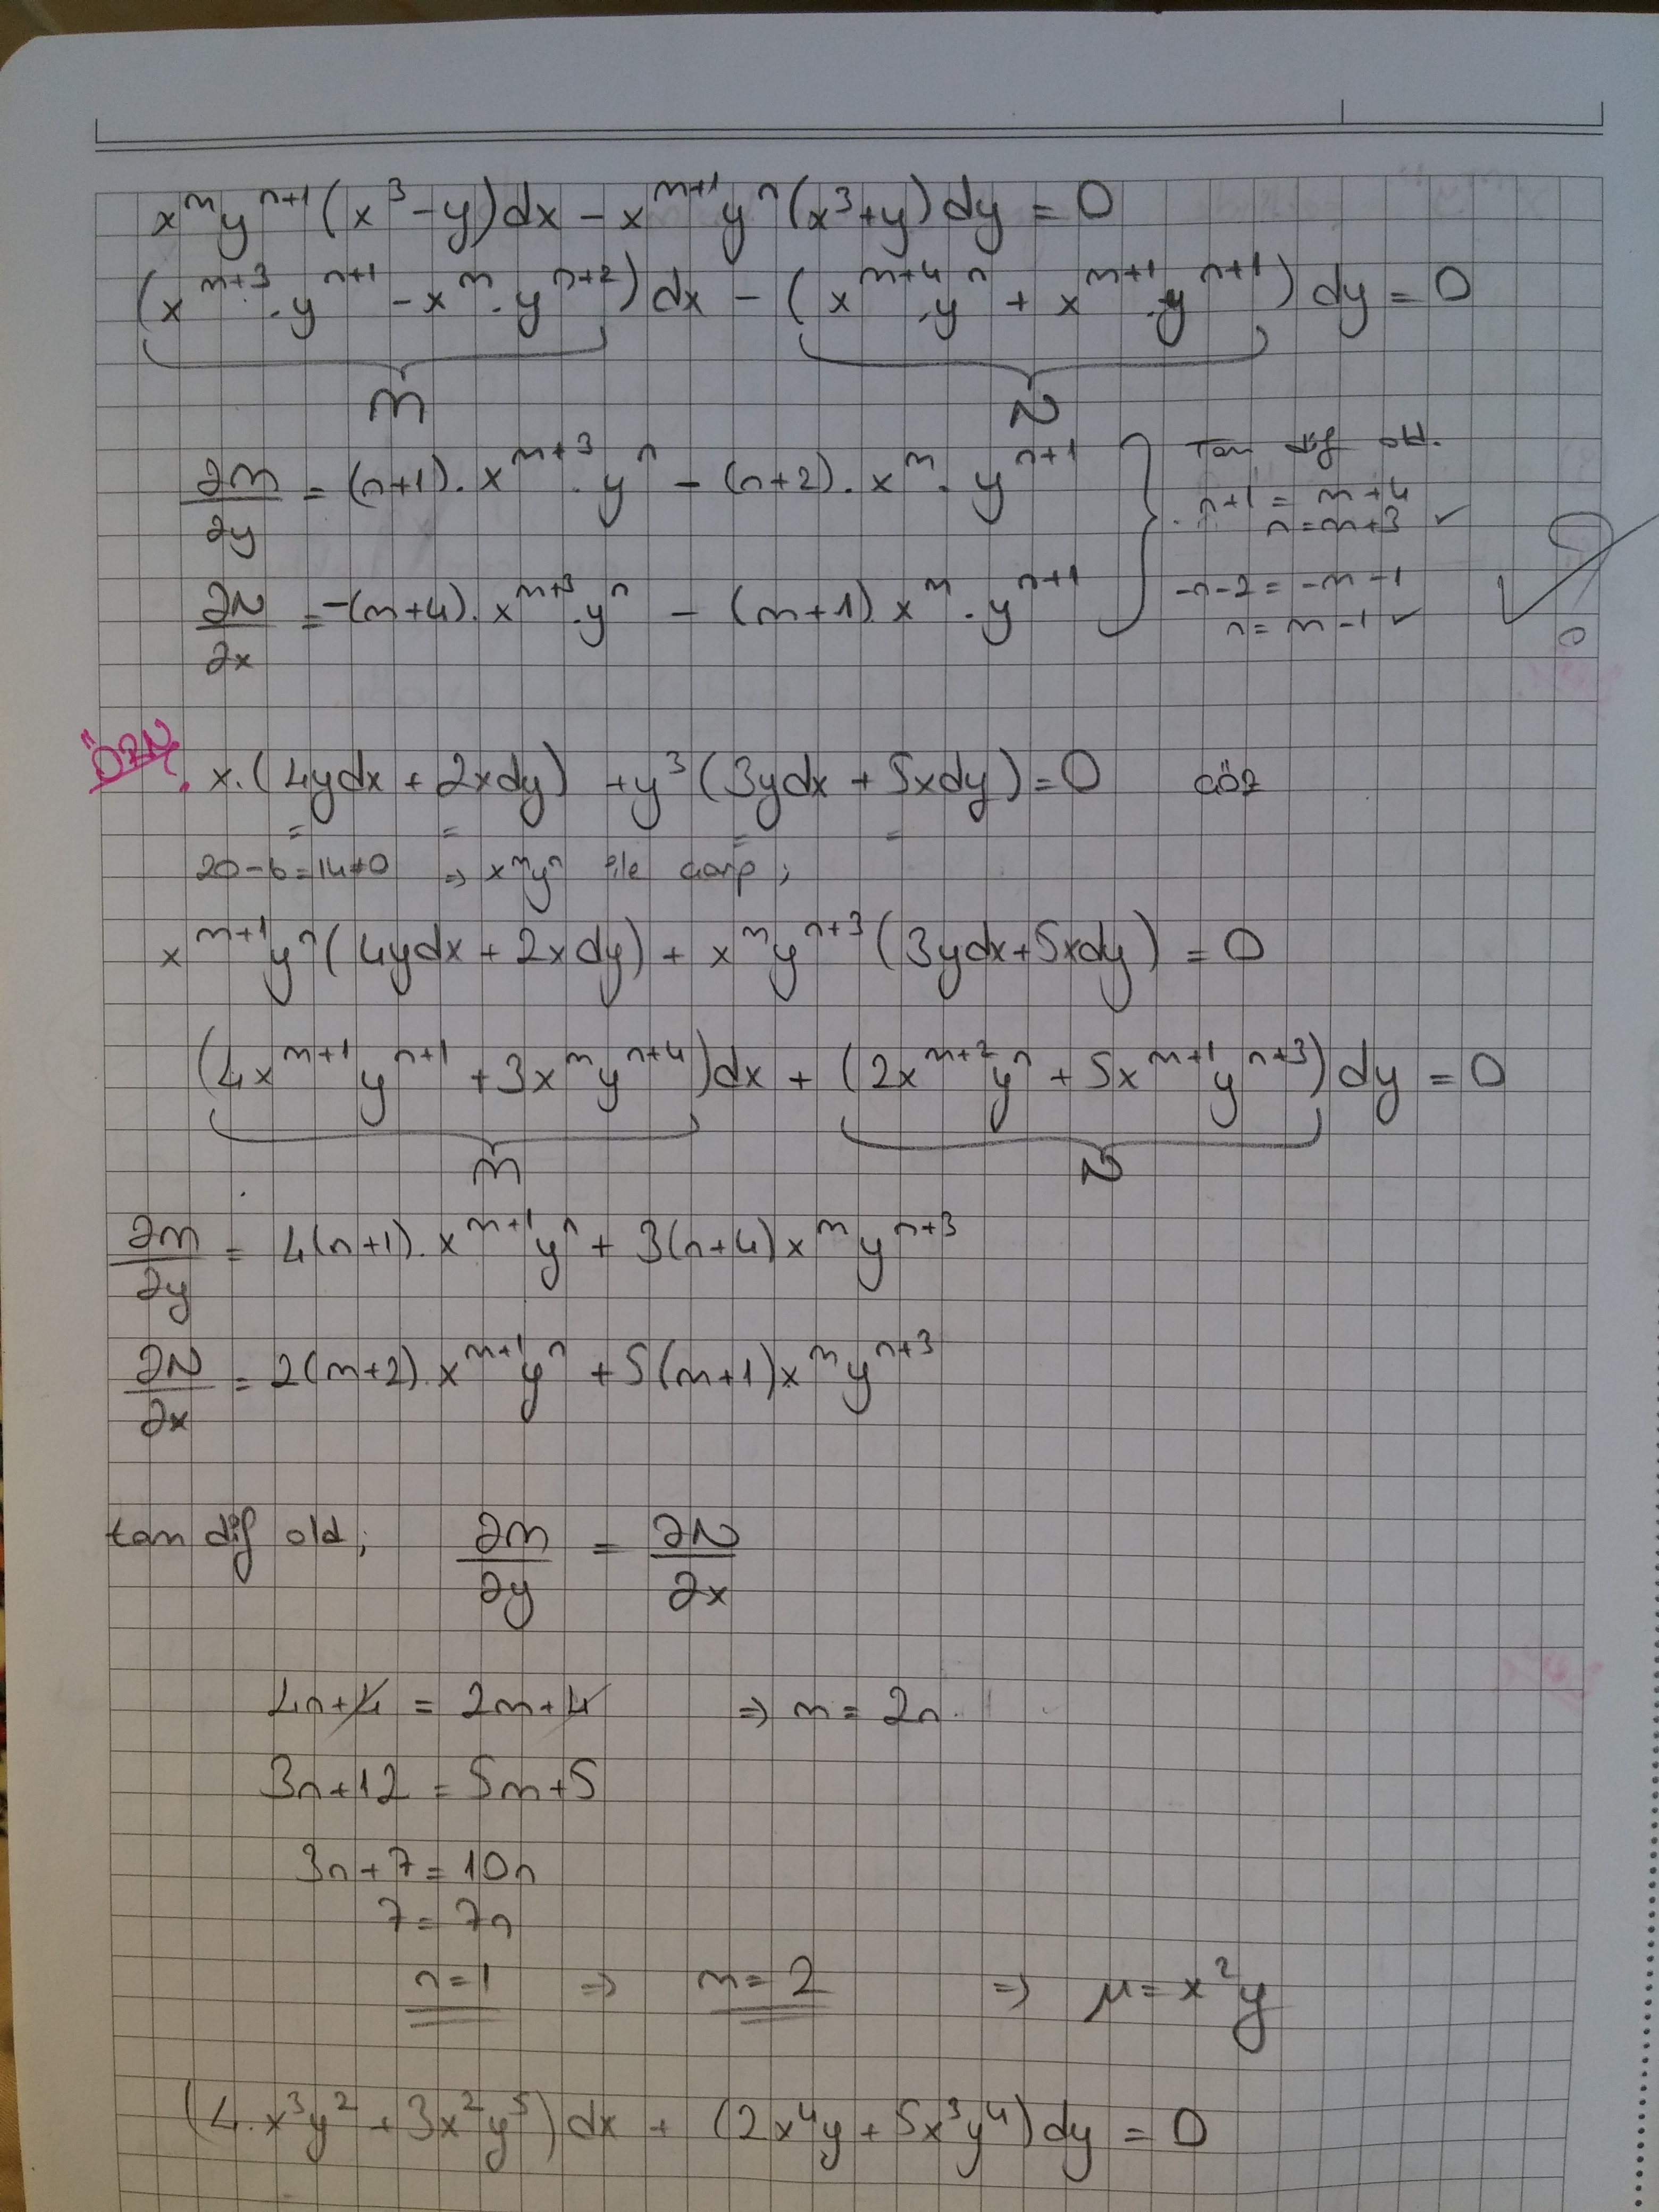 xᵐyⁿ⁺¹(x³-y)dx - xᵐ⁺¹yⁿ(x³+y)dy = 0
(xᵐ⁺³.yⁿ⁺¹ - xᵐ.yⁿ⁺²)dx - (xᵐ⁺⁴.yⁿ + xᵐ⁺¹.yⁿ⁺¹)dy = 0
M N
∂M/∂y = (n+1).xᵐ⁺³.yⁿ - (n+2).xᵐ.yⁿ⁺¹
∂N/∂x = -(m+4).xᵐ⁺³.yⁿ - (m+1).xᵐ.yⁿ⁺¹
Tam dif old.
n+1 = m+4
n = m+3 ✓
-n-2 = -m-1
n = m-1 ✓
ÖRN.
x.(4ydx + 2xdy) + y³(3ydx + 5xdy) = 0 çöz
20-6=14≠0 ⇒ xᵐyⁿ ile çarp;
xᵐ⁺¹yⁿ(4ydx + 2xdy) + xᵐyⁿ⁺³(3ydx+5xdy) = 0
(4xᵐ⁺¹yⁿ⁺¹ + 3xᵐyⁿ⁺⁴)dx + (2xᵐ⁺²yⁿ + 5xᵐ⁺¹yⁿ⁺³)dy = 0
M N
∂M/∂y = 4(n+1).xᵐ⁺¹yⁿ + 3(n+4)xᵐyⁿ⁺³
∂N/∂x = 2(m+2).xᵐ⁺¹yⁿ + 5(m+1)xᵐyⁿ⁺³
tam dif old; ∂M/∂y = ∂N/∂x
4n+4 = 2m+4 ⇒ m = 2n
3n+12 = 5m+5
3n+7 = 10n
7 = 7n
n=1 ⇒ m=2 ⇒ μ = x²y
(4.x³y² + 3x²y⁵)dx + (2x⁴y + 5x³y⁴)dy = 0